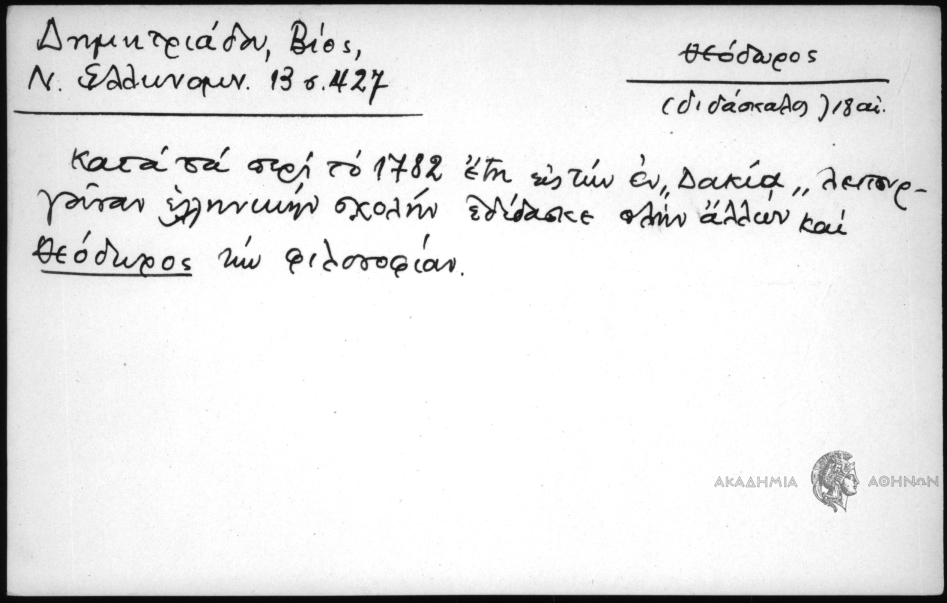 Δημητριάδου, Βίος,
Ν. Ἑλληνομν. 13 σ. 427
Θεόδωρος
(διδάσκαλος) 18 αἰ.
Κατά τά περί τό 1782 ἔτη εἰς τήν ἐν „Δακίᾳ„ λειτουρ-
γοῦσαν ἑλληνικήν σχολήν ἐδίδασκε πλήν ἄλλων καί
Θεόδωρος τήν φιλοσοφίαν.
ΑΚΑΔΗΜΙΑ ΑΘΗΝΩΝ